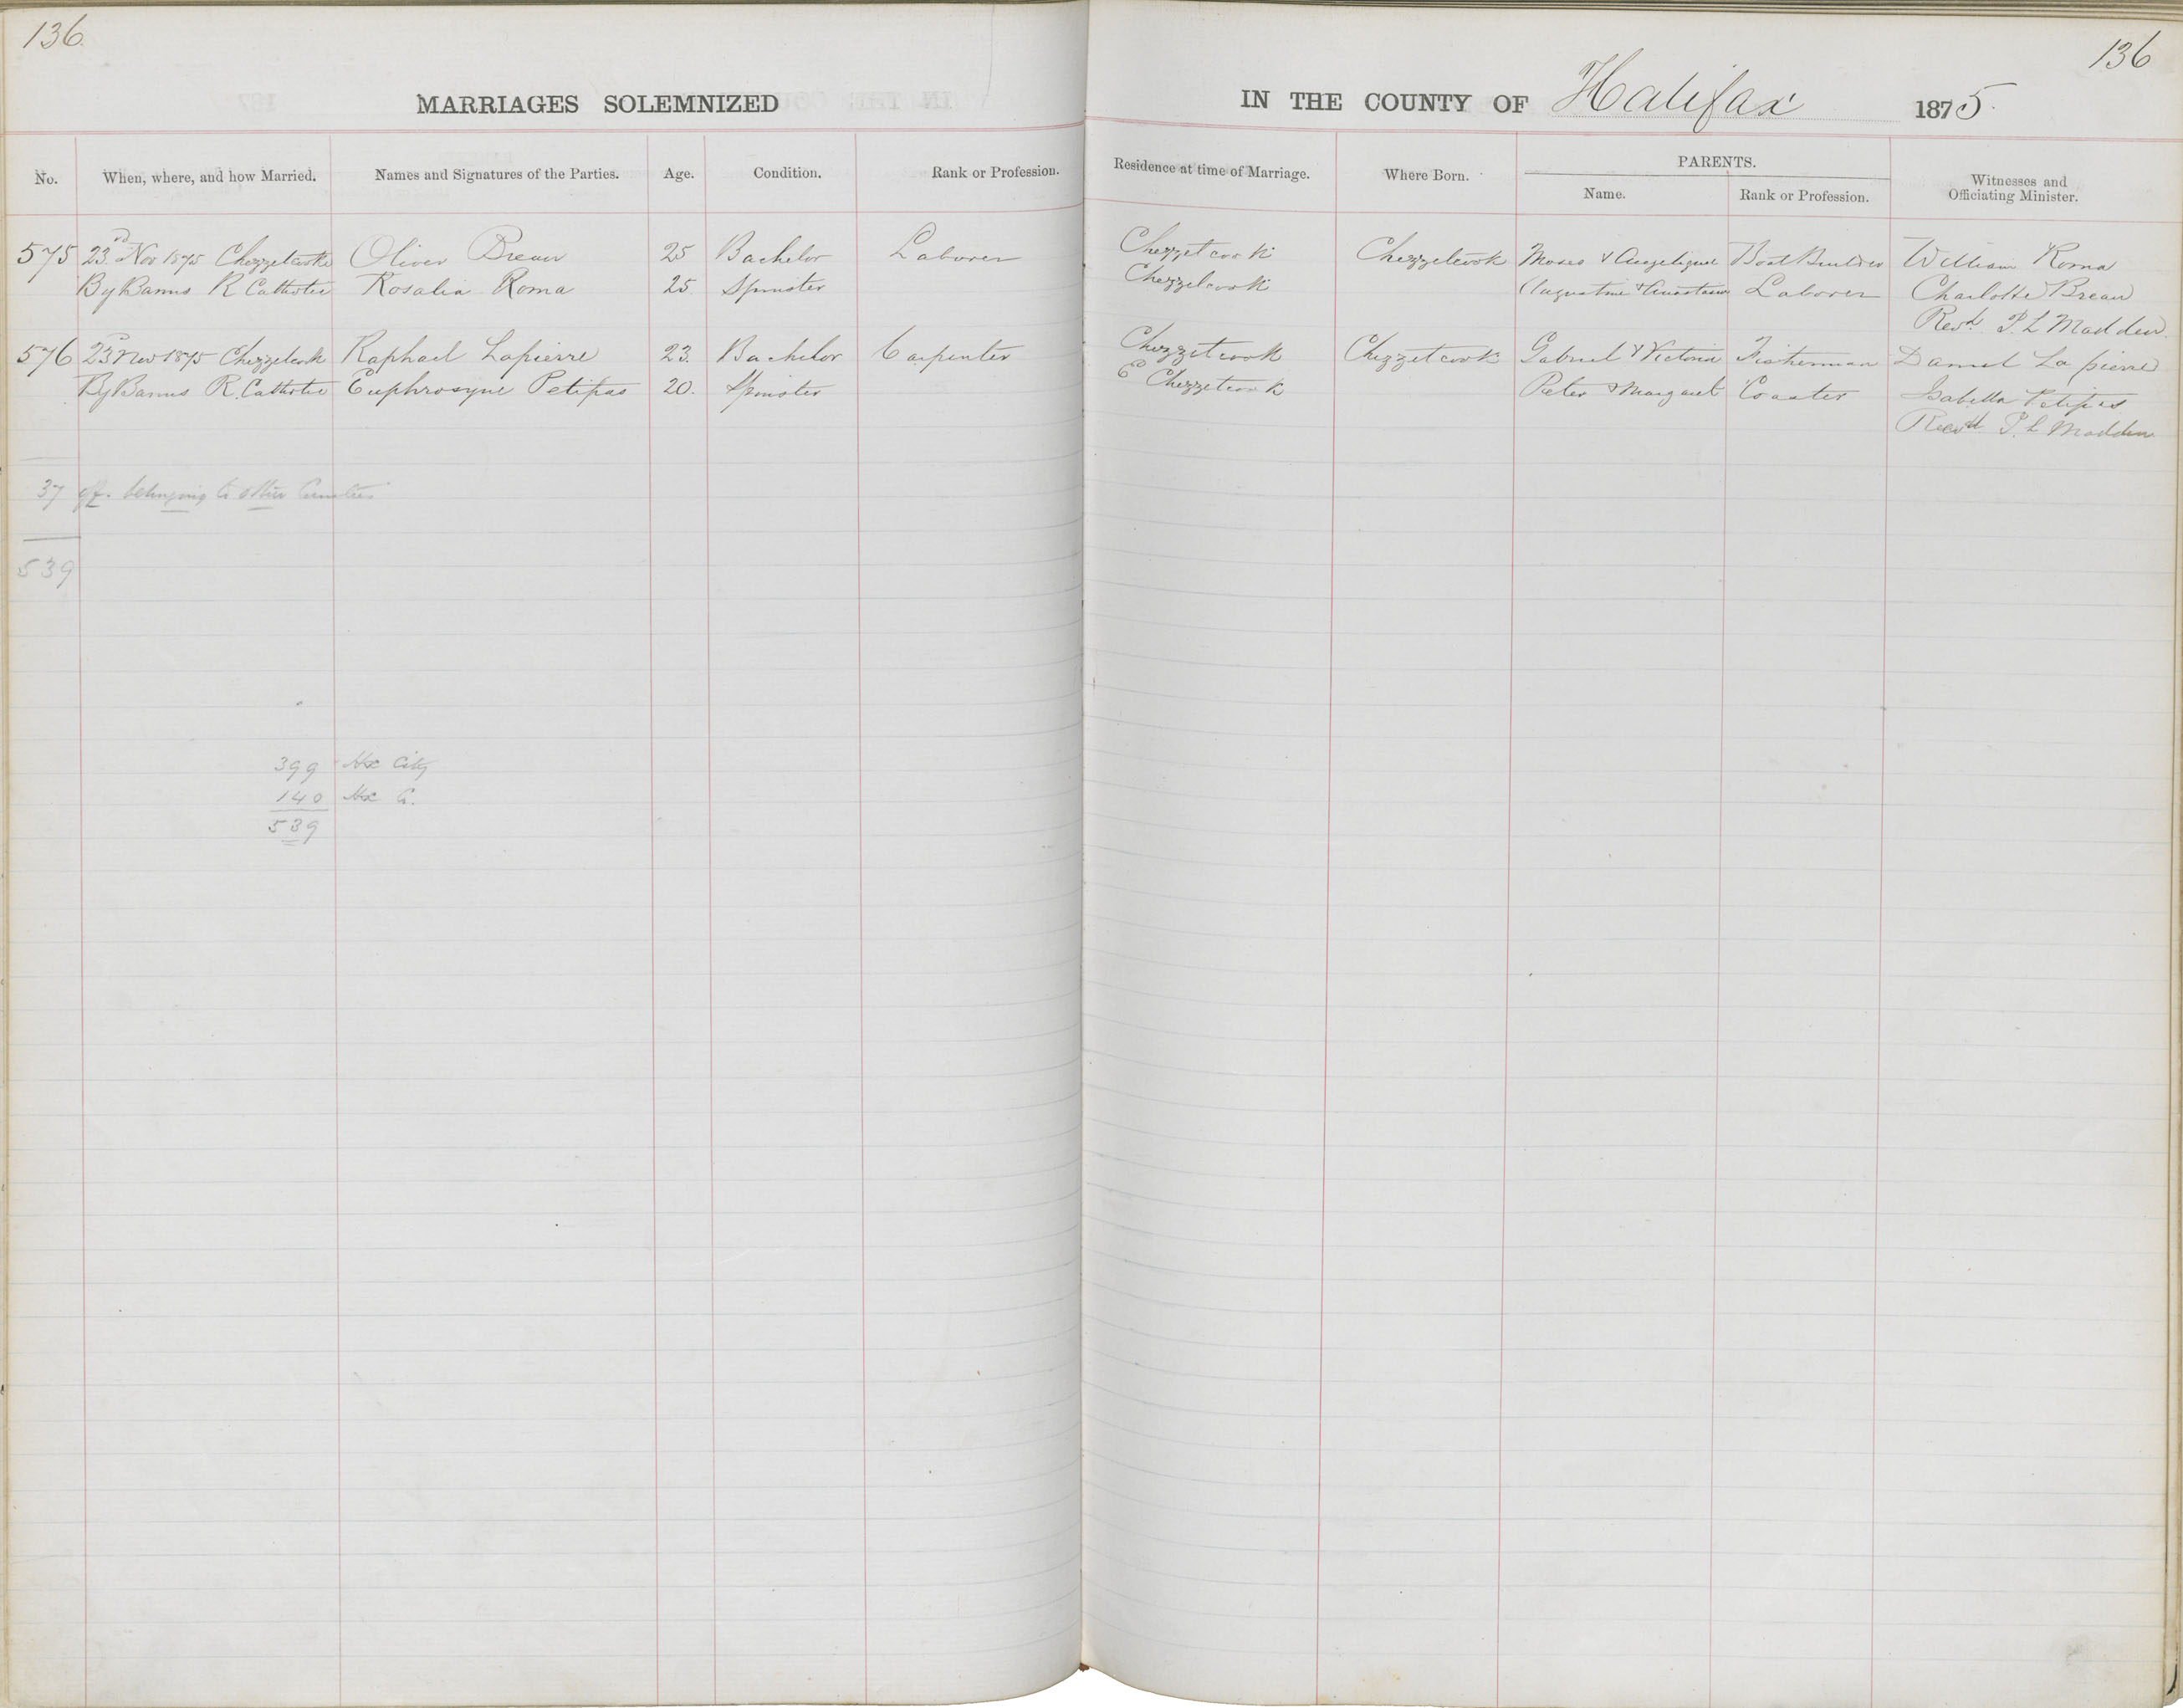 136.
136
MARRIAGES SOLEMNIZED IN THE COUNTY OF Halifax 1875.
No. When, where, and how Married. Names and Signatures of the Parties. Age. Condition. Rank or Profession. Residence at time of Marriage. Where Born. PARENTS. Name. Rank or Profession. Witnesses and Officiating Minister.
575 23rd Nov 1875 Chezzetcook Oliver Breau 25 Bachelor Laborer Chezzetcook Chezzetcook Moses & Angelique Boat Builder William Roma
By Banns R Catholic Rosalia Roma 25 Spinster Chezzetcook Augustine & Anastasia Laborer Charlotte Breau
Revd P. L Madden
576 23rd Nov 1875 Chezzetcook Raphael Lapierre 23. Bachelor Carpenter Chezzetcook Chezzetcook Gabriel & Victoria Fisherman Daniel Lapierre
By Banns R. Catholic Euphrosyne Petipas 20. Spinster E Chezzetcook Peter & Margaret Coaster Isabella Petipas
Revd P. L Madden
37 off. belonging to other Counties
539
399 Hx City
140 Hx C.
539